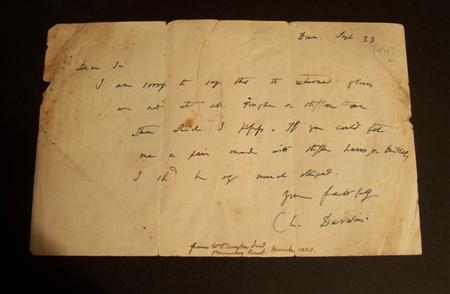 Down. Sept 23
Dear Sir
I am sorry to say that the returned gloves
are not at all rougher or stiffer than
those which I
If you could get
me a pair made with stiffer hairs, or bristles,
I shd. be very much obliged.
Yours faithfully
Ch. Darwin
from W
Bromley Kent. March